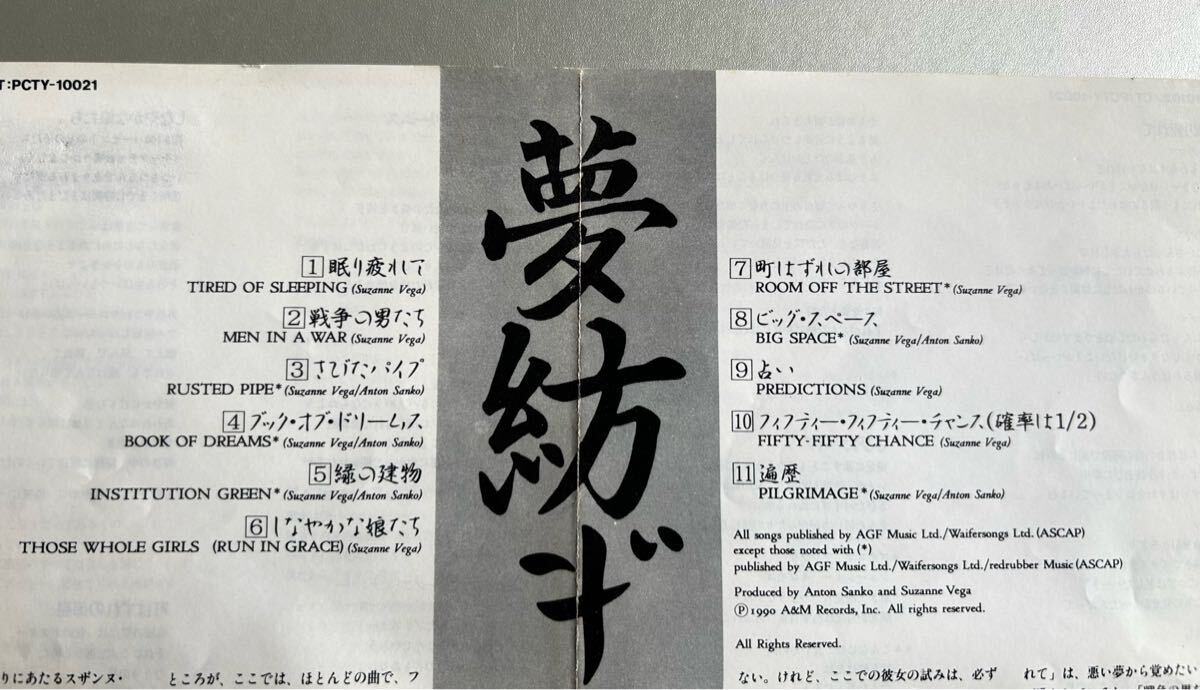 T:PCTY-10021
夢紡ぎ
1 眠り疲れて
TIRED OF SLEEPING (Suzanne Vega)
2 戦争の男たち
MEN IN A WAR (Suzanne Vega)
3 さびたパイプ
RUSTED PIPE* (Suzanne Vega/Anton Sanko)
4 ブック・オブ・ドリームス
BOOK OF DREAMS* (Suzanne Vega/Anton Sanko)
5 緑の建物
INSTITUTION GREEN* (Suzanne Vega/Anton Sanko)
6 しなやかな娘たち
THOSE WHOLE GIRLS (RUN IN GRACE) (Suzanne Vega)
7 町はずれの部屋
ROOM OFF THE STREET* (Suzanne Vega)
8 ビッグ・スペース
BIG SPACE* (Suzanne Vega/Anton Sanko)
9 占い
PREDICTIONS (Suzanne Vega)
10 フィフティー・フィフティー・チャンス(確率は1/2)
FIFTY-FIFTY CHANCE (Suzanne Vega)
11 遍歴
PILGRIMAGE* (Suzanne Vega/Anton Sanko)
All songs published by AGF Music Ltd./Waifersongs Ltd. (ASCAP)
except those noted with (*)
published by AGF Music Ltd./Waifersongs Ltd./redrubber Music (ASCAP)
Produced by Anton Sanko and Suzanne Vega
Ⓟ1990 A&M Records, Inc. All rights reserved.
All Rights Reserved.
りにあたるスザンヌ・
ところが、ここでは、ほとんどの曲で、フ
ない。けれど、ここでの彼女の試みは、必ず
れて」は、悪い夢から覚めたい